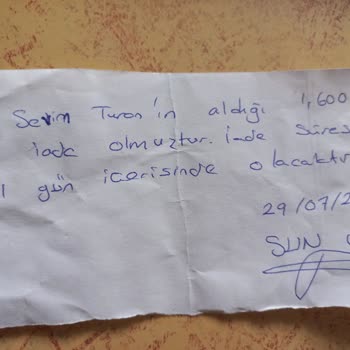 Sevim Turan'ın aldığı 1,600
iade olmuztur. inde süres
gün icerisinde olacaktır
29/07/2
SUN